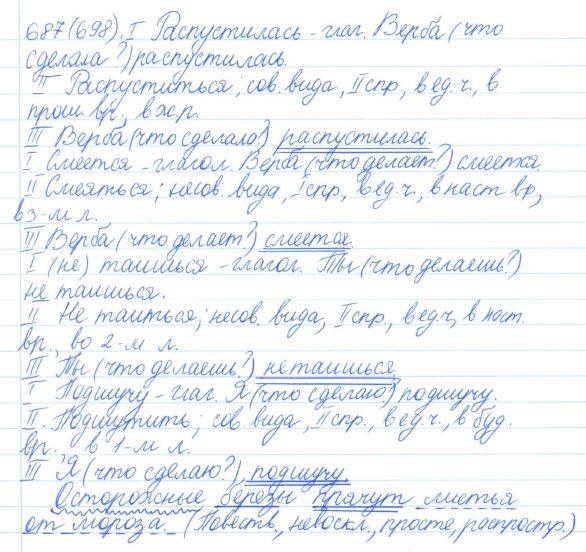 687(698). I Распустилась - глаг. Верба (что
сделала?) распустилась.
II Распуститься; сов. вида, II спр, в ед. ч., в
прош. вр., в ж.р.
III Верба (что сделало?) распустилась.
I Смеется - глагол. Верба (что делает?) смеется.
II Смеяться; несов. вида, I спр, в ед. ч, в наст вр,
в 3-м л.
III Верба (что делает?) смеется.
I (не) таишься - глагог. Ты (что делаешь?)
не таишься.
II Не таиться; несов. вида, II спр, в ед.ч, в наст.
вр., во 2-м л.
III Ты (что делаешь?) не таишься.
I Подшучу - глаг. Я (что сделаю) подшучу.
II. Подшутить; сов. вида, II спр., в ед.ч., в буд.
вр., в 1-м л.
III Я (что сделаю?) подшучу.
Осторожные березы прячут листья
от мороза. (Повеств, невоскл, простое, распростр.)